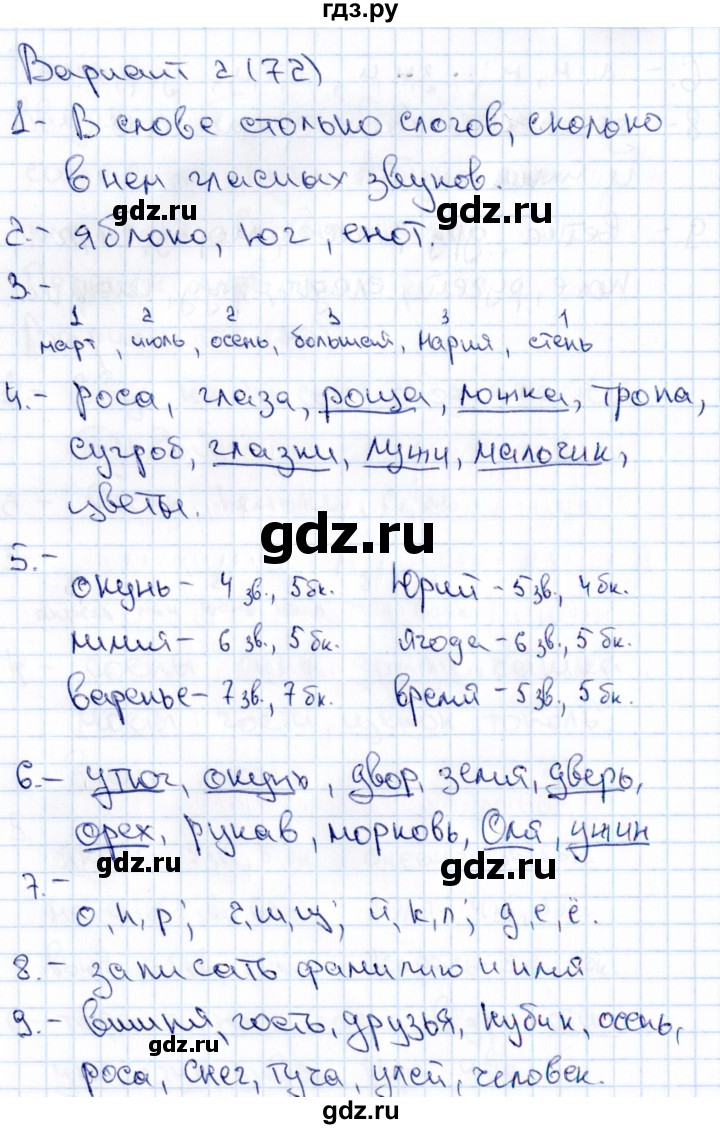 гдз.ру
Вариант 2 (72)
1- В слове столько слогов, сколько
в нем гласных звуков.
gdz.ru gdz.ru
2.- яблоко, юг, енот.
3.-
1 2 2 3 3 1
март, июль, осень, большая, Мария, степь
4.- роса, глаза, роща, ложка, тропа,
сугроб, глазки, лужи, мальчик,
цветы.
gdz.ru
5.-
окунь - 4 зв., 5 бк. Юрий - 5 зв., 4 бк.
линия - 6 зв., 5 бк. ягода - 6 зв., 5 бк.
gdz.ru gdz.ru
варенье - 7 зв., 7 бк. время - 5 зв., 5 бк.
6.- утюг, окунь, двор, земля, дверь,
орех, рукав, морковь, Оля, ужин
gdz.ru gdz.ru
7.-
о, п, р; ш, щ; й, к, л; д, е, ё.
8.- записать фамилию и имя
9.- вишня, гость, друзья, кубик, осень,
gdz.ru
роса, снег, туча, улей, человек.
gdz.ru